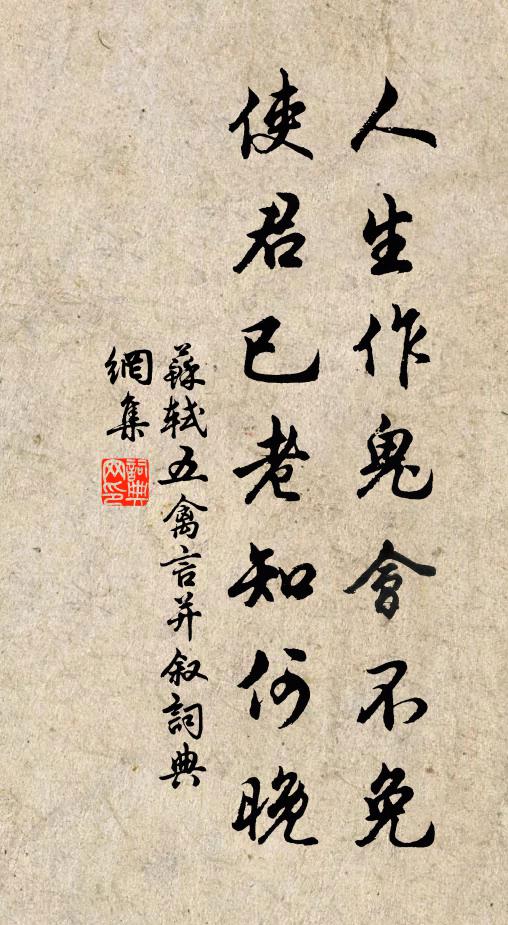 人生作鬼會不免
使君已老知何晚
蘇軾五禽言并敘詞典
網集
詞典
网印